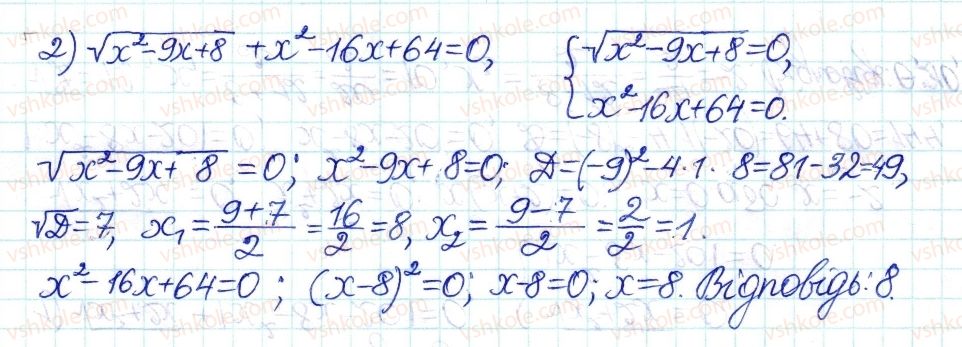 2) √(x²-9x+8) + x²-16x+64=0, { √(x²-9x+8)=0,
x²-16x+64=0.
√(x²-9x+8) = 0; x²-9x+8=0; D=(-9)²-4·1·8=81-32=49,
√D=7, x₁=(9+7)/2=16/2=8, x₂=(9-7)/2=2/2=1.
x²-16x+64=0; (x-8)²=0; x-8=0; x=8. Відповідь: 8.